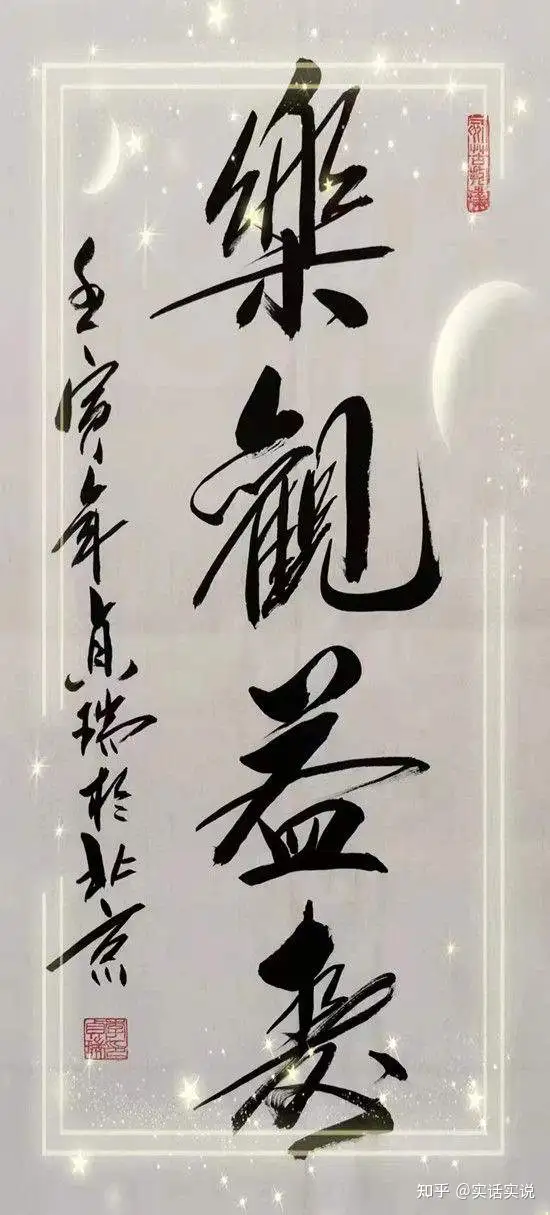 樂觀益壽
壬寅年貞瑞於北京
知乎 @实话实说